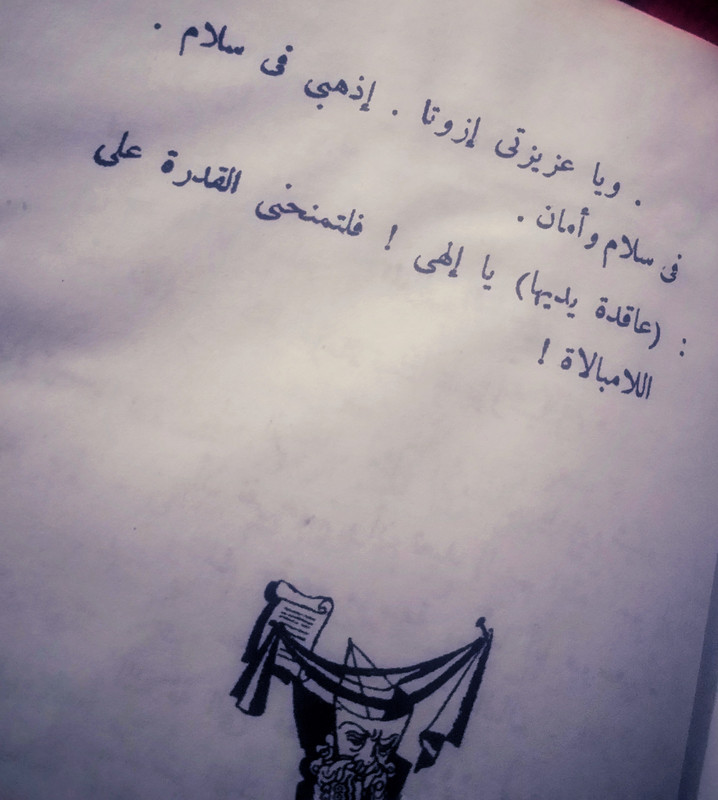 . ويا عزيزتى إزوتا . إذهبى فى سلام .
فى سلام وأمان .
: (عاقدة يديها) يا إلهى ! فلتمنحنى القدرة على
اللامبالاة !